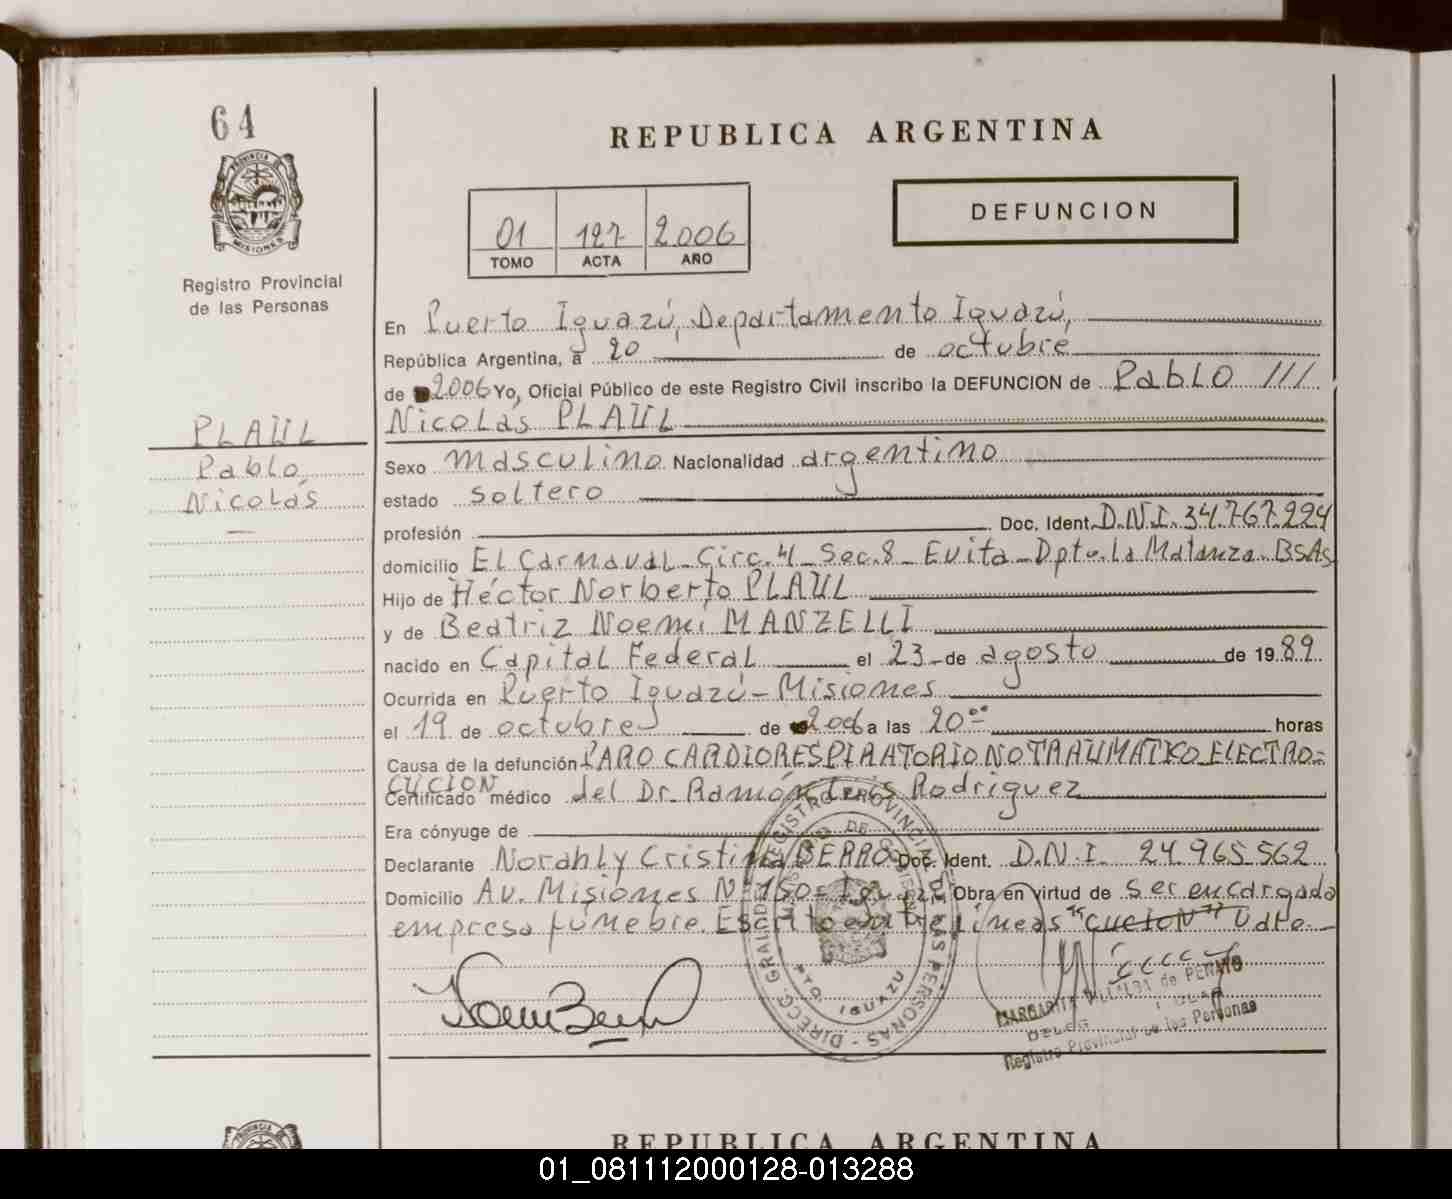 64
PROVINCIA DE
MISIONES
Registro Provincial
de las Personas
PLAUL
Pablo
Nicolás
REPUBLICA ARGENTINA
01 127 2006
TOMO ACTA AÑO
DEFUNCION
En Puerto Iguazú, Departamento Iguazú,
República Argentina, a 20 de octubre
de 2006 Yo, Oficial Público de este Registro Civil inscribo la DEFUNCION de Pablo ///
Nicolás PLAUL
Sexo masculino Nacionalidad argentino
estado soltero
profesión Doc. Ident. D.N.I. 34.767.224
domicilio El Carnaval - Circ. 4 - Sec. 8 - Evita - Dpto. La Matanza - BSAs
Hijo de Héctor Norberto PLAUL
y de Beatriz Noemí MANZELLI
nacido en Capital Federal el 23 - de agosto de 1989
Ocurrida en Puerto Iguazú - Misiones
el 19 de octubre de 2006 a las 20 horas
Causa de la defunción PARO CARDIORESPIRATORIO NO TRAUMATICO ELECTRO=
CUCION
Certificado médico del Dr. Ramón Luis Rodriguez
Era cónyuge de
Declarante Norahly Cristina BERRO Doc. Ident. D.N.I. 24.965.562
Domicilio Av. Misiones Nº 150 - Iguazú Obra en virtud de ser encargada
empresa fúnebre. Escrito entre líneas "CUCION" Vale.-
DIRECC. GRAL. DEL REGISTRO PROVINCIAL DE LAS PERSONAS
PTO. IGUAZU
MARGARITA VILLALBA de PENAYO
Registro Provincial de las Personas
PROVINCIA DE
REPUBLICA ARGENTINA
01_081112000128-013288